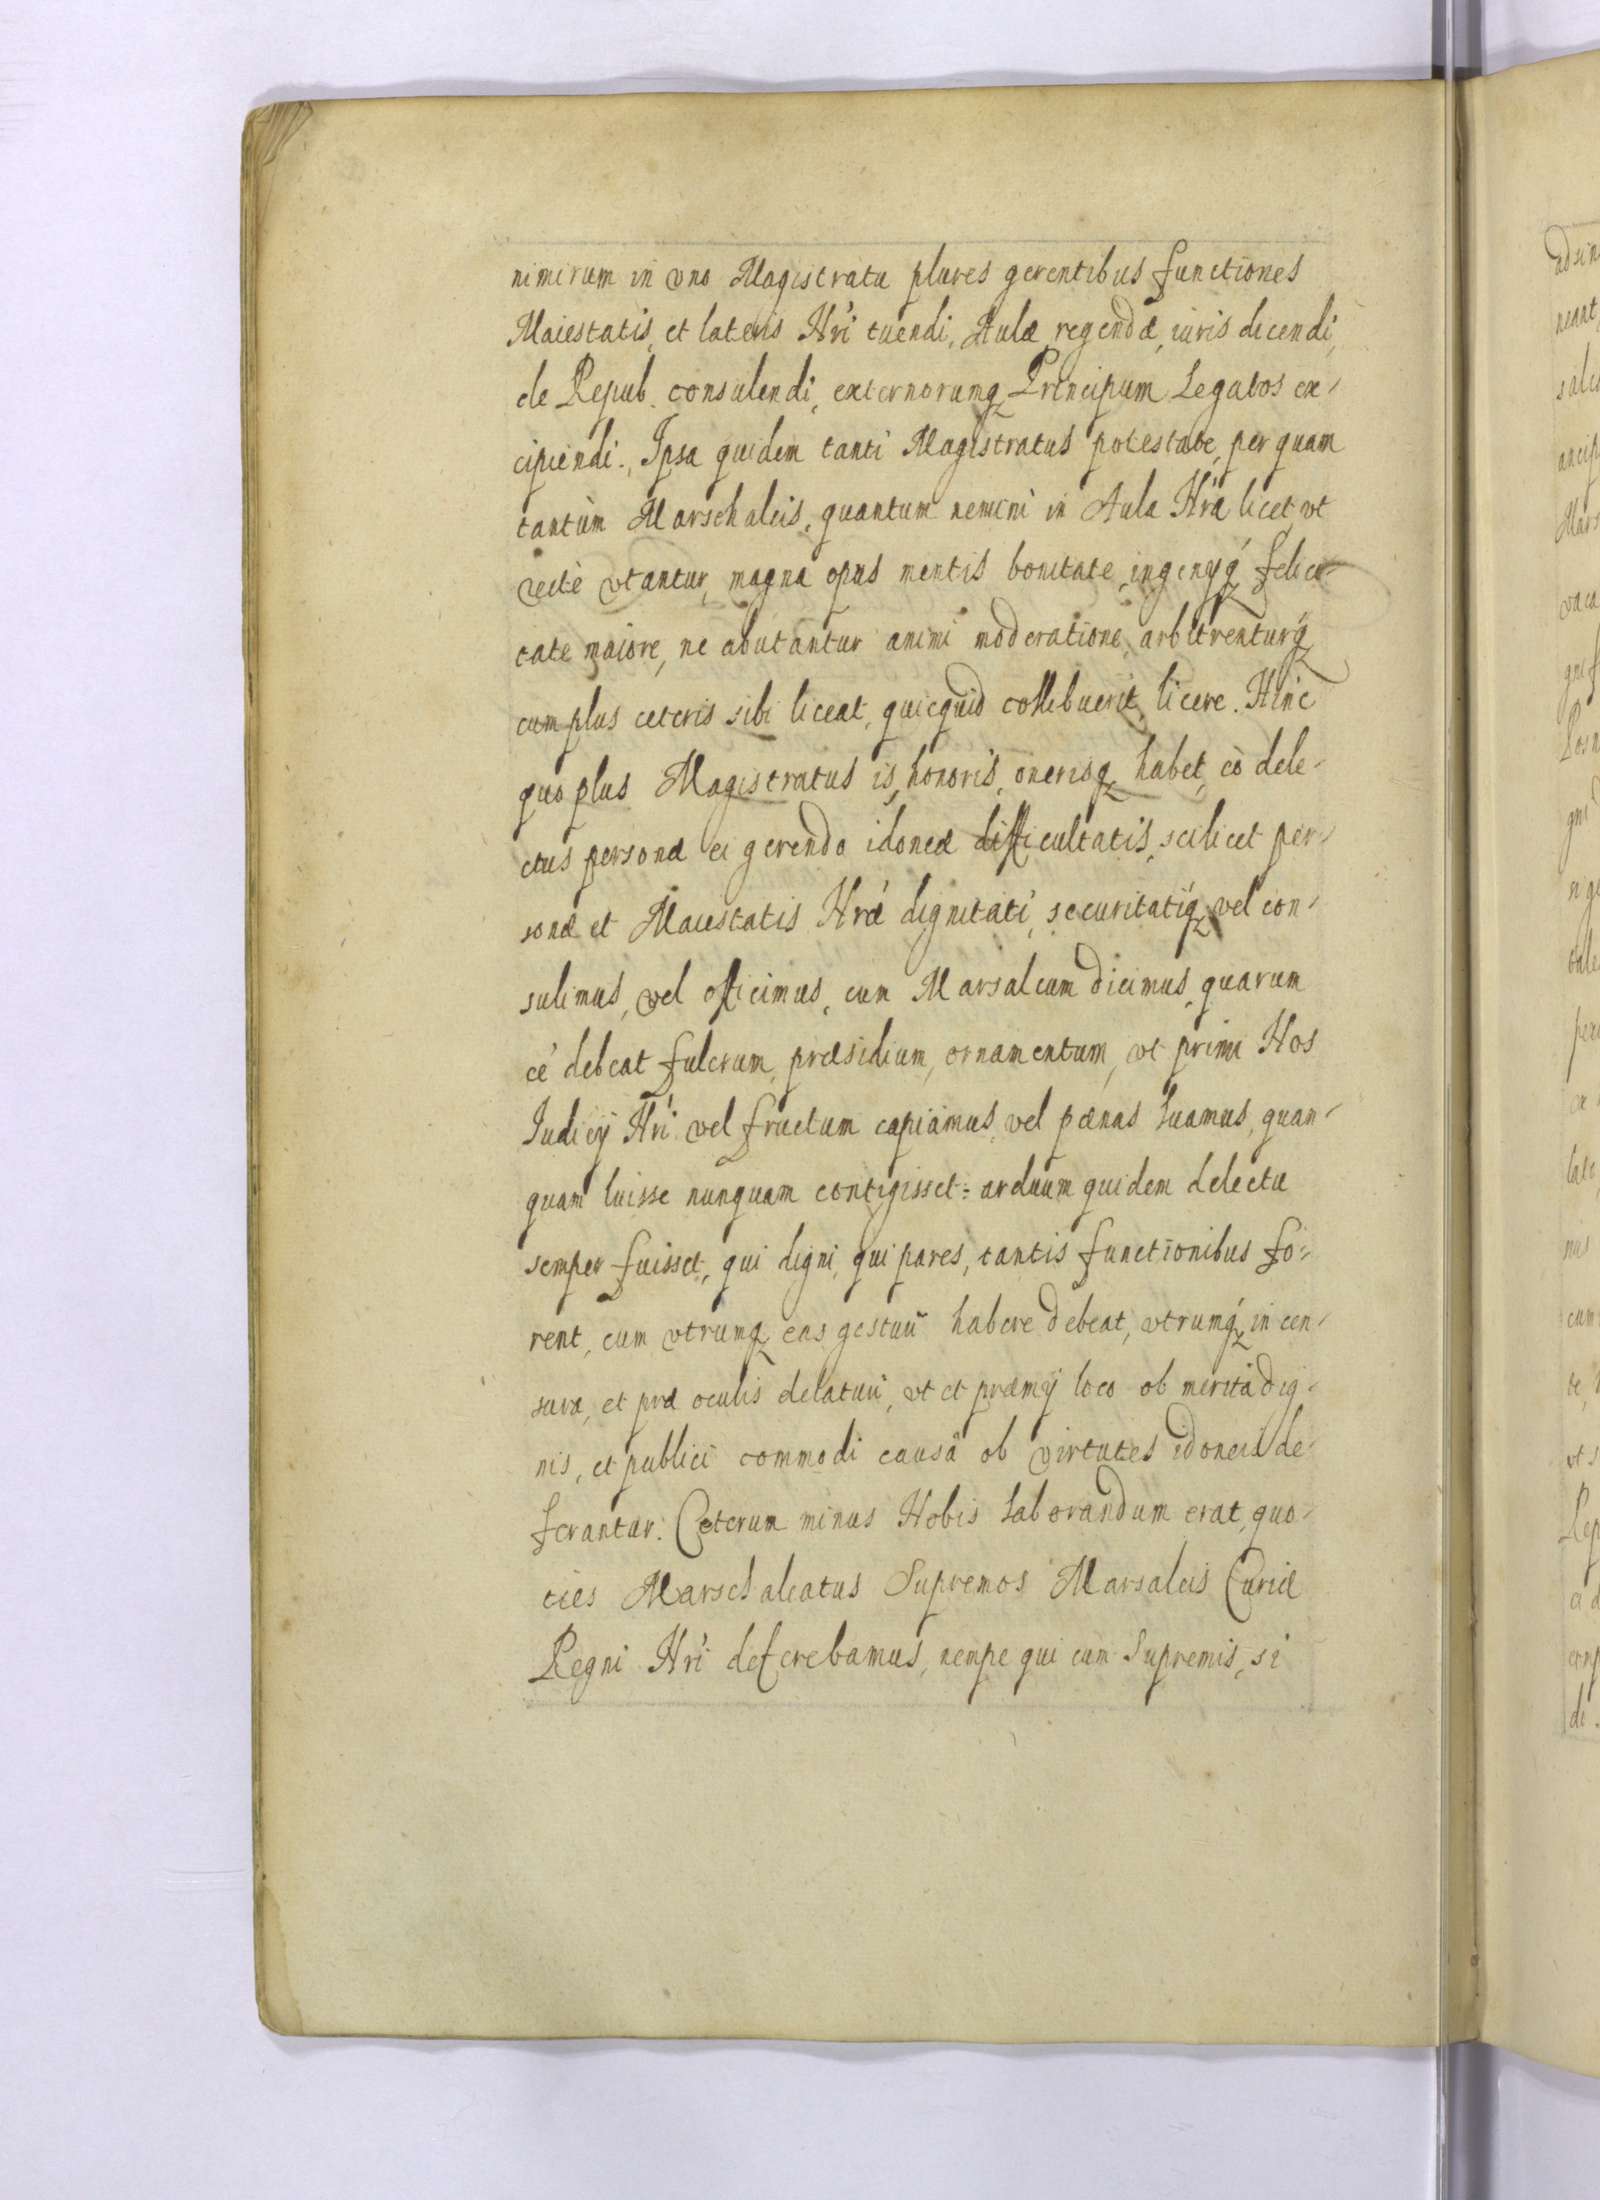 nimirum in vno Magistratu plures gerentibus functiones
Maiestatis, et lateris Nri tuendi, Aulæ regendæ, iuris dicendi,
de Repub. consulendi, externorumq Principum Legatos ex-
cipiendi. Ipsa quidem tanti Magistratus potestate, per quam
tantùm Marschalcis, quantum nemini in Aula Nra licet, vt
rectè vtantur, magna opus mentis bonitate, ingenyq felici-
tate maiore, ne abutantur animi moderatione, arbitrenturq
cum plus ceteris sibi liceat, quicquid collibuerit, licere. Hinc
quo plus Magistratus is, honoris, onerisq habet, eò dele-
ctus personæ ei gerendo idoneæ difficultatis, scilicet per-
sonæ et Maiestatis Nræ dignitati, securitatiq vel con-
sulimus, vel officimus, cum Marsalcum dicimus, quarum
cè debeat fulcrum, præsidium, ornamentum, vt primi Nos
Iudicy Nri vel fructum capiamus, vel pœnas luamus, quan-
quam luisse nunquam contigisset: arduum quidem delectu
semper fuisset, qui digni, qui pares, tantis functionibus fo-
rent, cum vtrumq eas gestuū habere debeat, vtrumq in cen-
sura, et præ oculis delaturi, vt et præmy loco ob merita dig-
nis, et publici commodi causâ ob virtutes idoneis de-
ferantur. Ceterum minus Nobis laborandum erat, quo-
ties Marschalcatus Supremos Marsalcis Curiæ
Regni Nri deferebamus, nempe qui cum Supremis, si